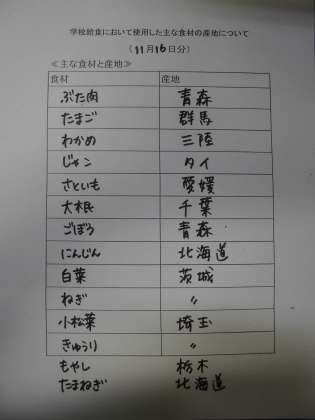 学校給食において使用した主な食材の産地について
(11月16日分)
≪主な食材と産地≫
食材 産地
ぶた肉 青森
たまご 群馬
わかめ 三陸
じゃこ タイ
さといも 愛媛
大根 千葉
ごぼう 青森
にんじん 北海道
白菜 茨城
ねぎ 〃
小松菜 埼玉
きゅうり 〃
もやし 栃木
たまねぎ 北海道